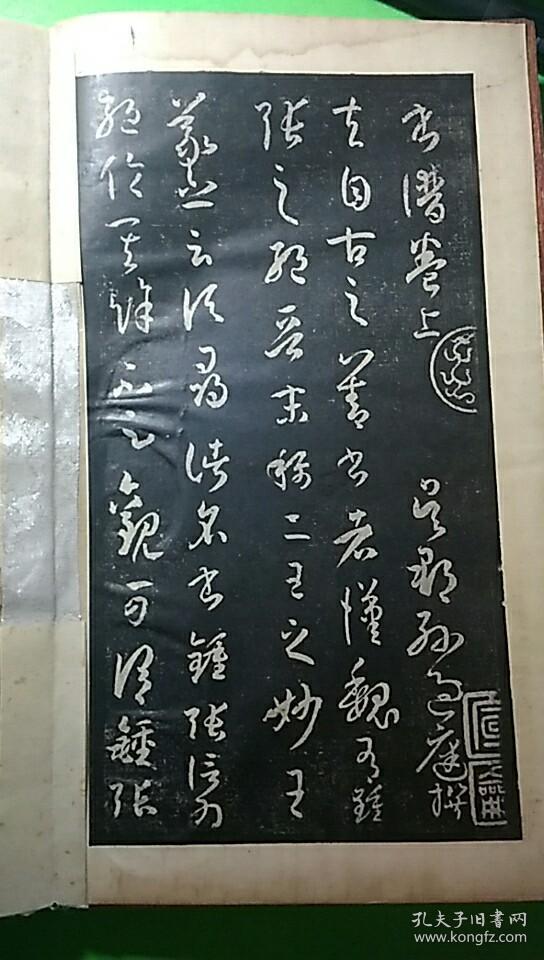 書譜卷上 吳郡孫過庭撰
夫自古之善書者漢魏有鍾
張之絕晉末稱二王之妙王
羲之云頃尋諸名書鍾張信為
絕倫其餘不足觀可謂鍾張
孔夫子旧书网
www.kongfz.com